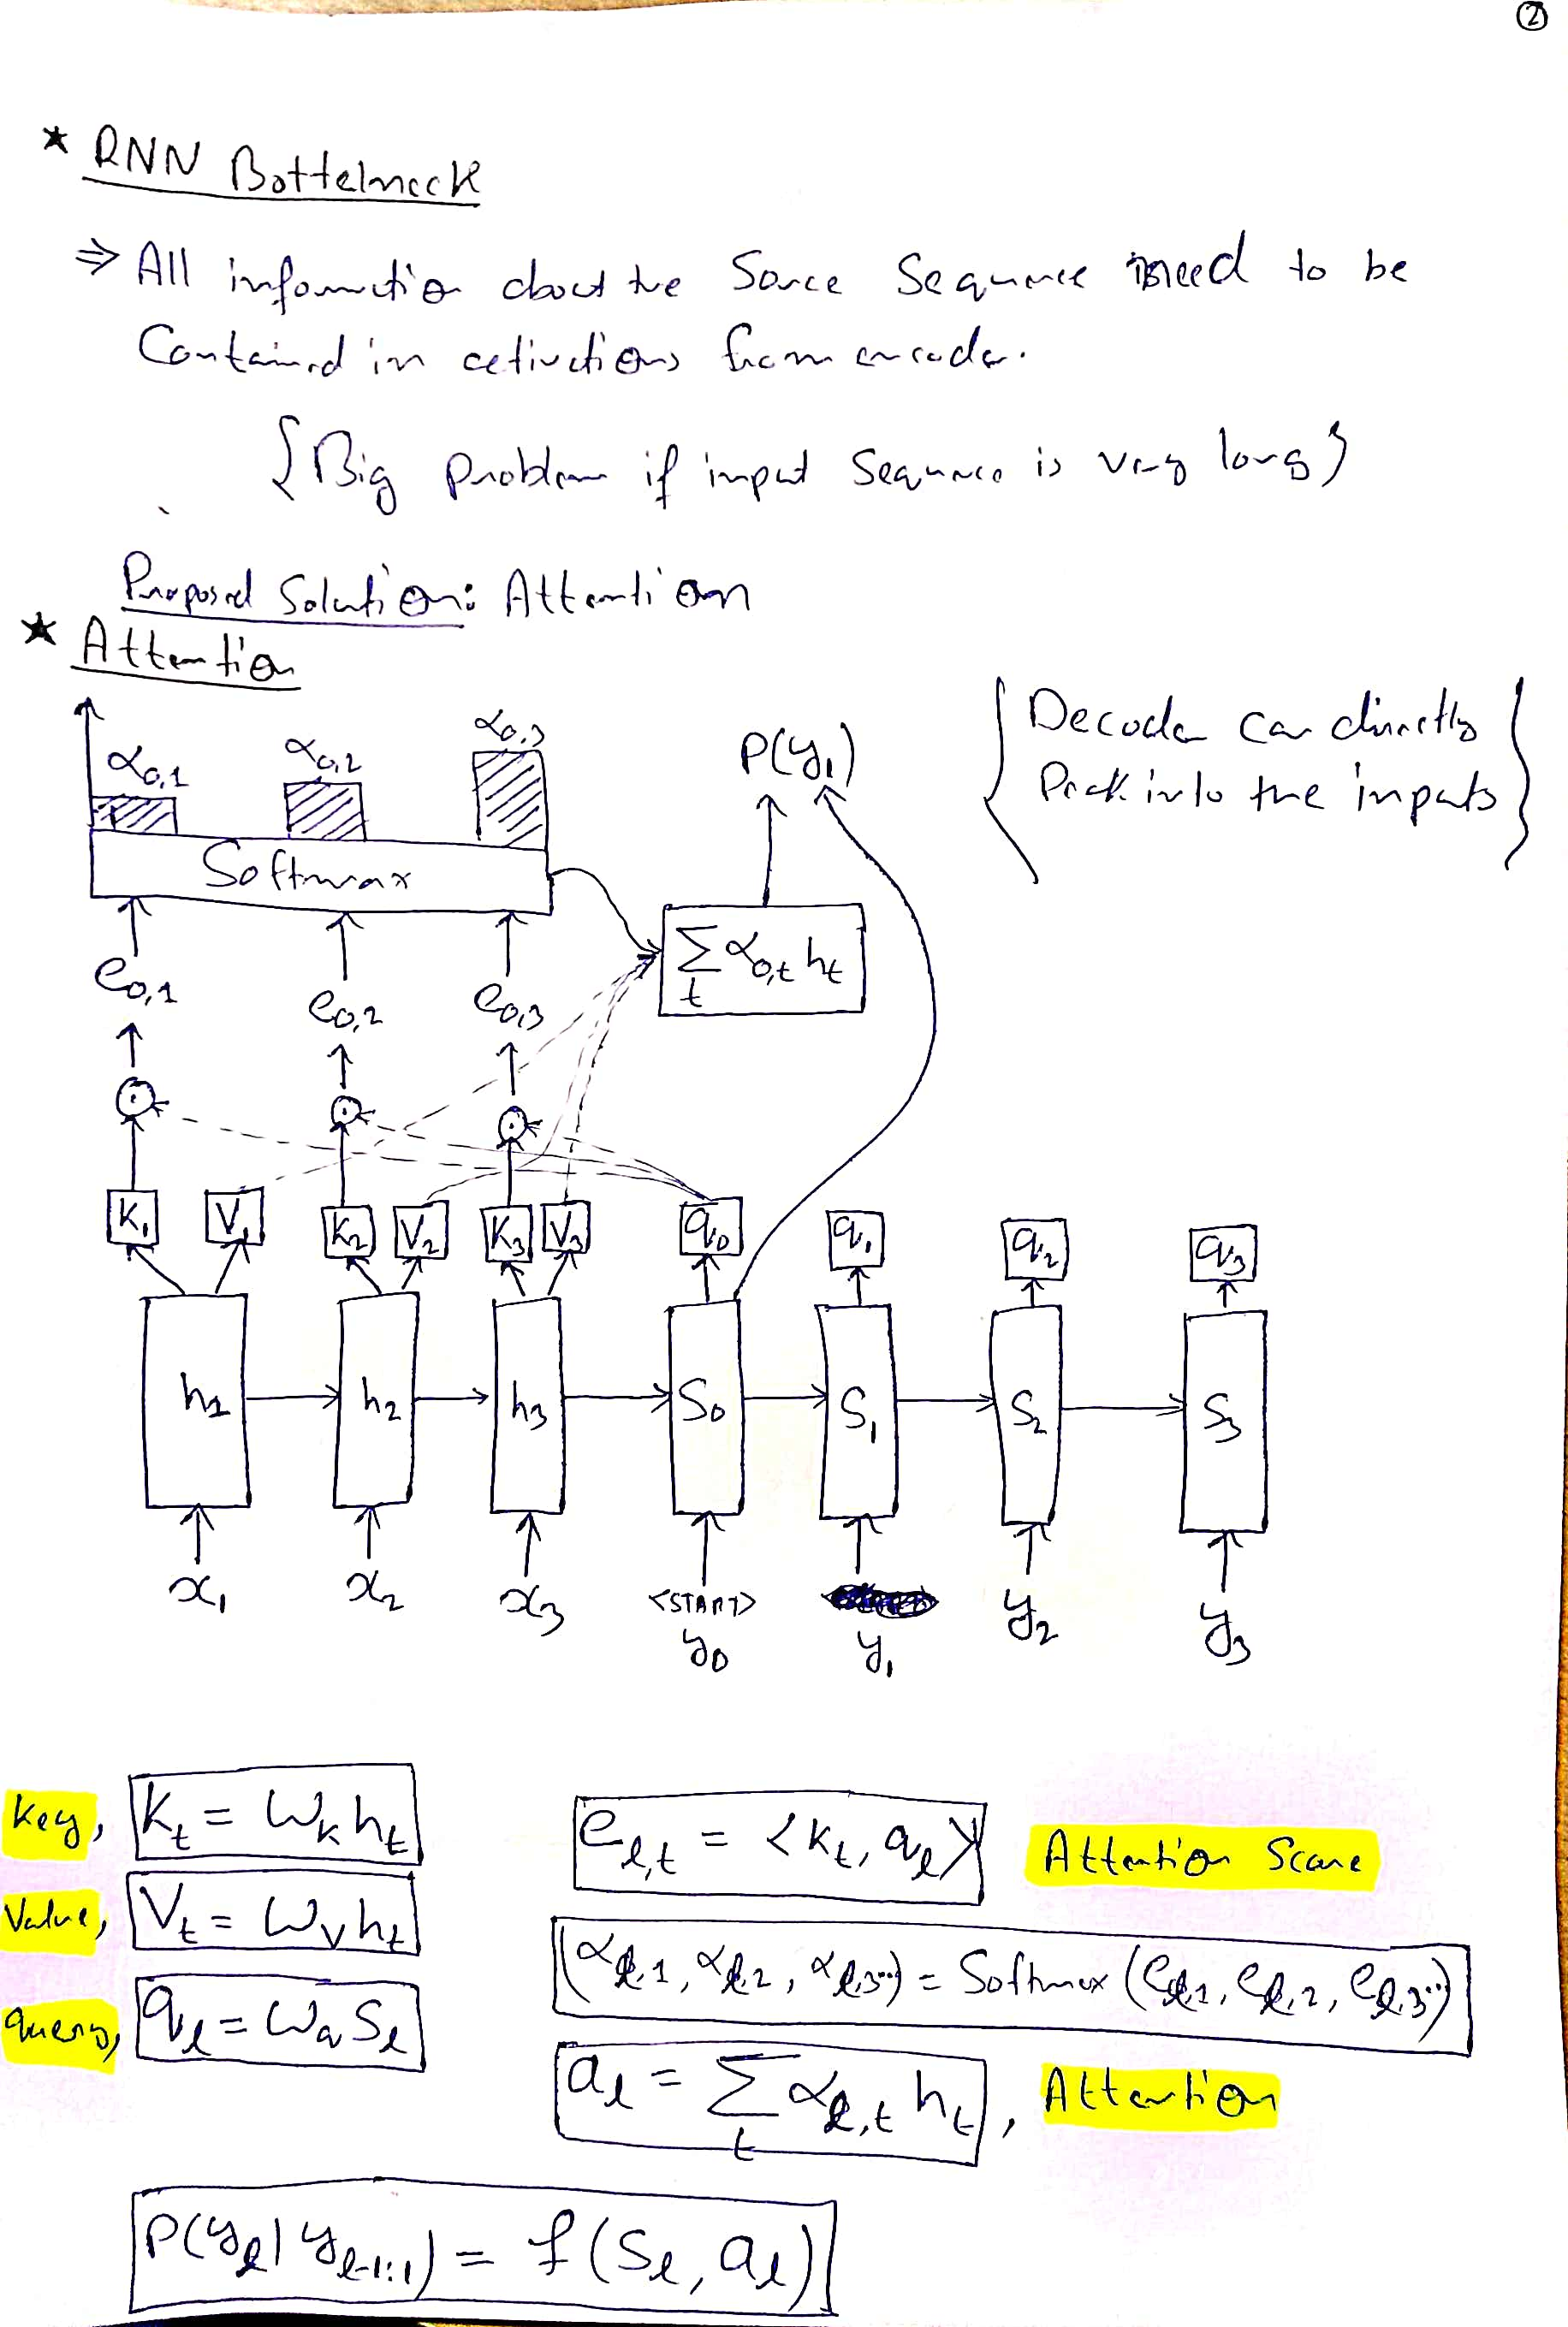 ②
* RNN Bottelneck
⇒ All information about the Source Sequence need to be
Contained in activations from encoder.
{Big Problem if input Sequence is very long}
Proposed Solution: Attention
* Attention
{Decoder can directly
Peek into the inputs}
α0,1 α0,2 α0,3 P(y1)
Softmax
∑t α0,t ht
e0,1 e0,2 e0,3
K1 V1 K2 V2 K3 V3 q0 q1 q2 q3
h1 h2 h3 S0 S1 S2 S3
x1 x2 x3 <START> y0 y1 y2 y3
Key, Kt = Wk ht
Value, Vt = Wv ht
query, ql = Wq Sl
el,t = <Kt, ql> Attention Score
(αl,1, αl,2, αl,3...) = Softmax (el,1, el,2, el,3...)
al = ∑t αl,t ht, Attention
P(yl | yl-1:1) = f(Sl, al)